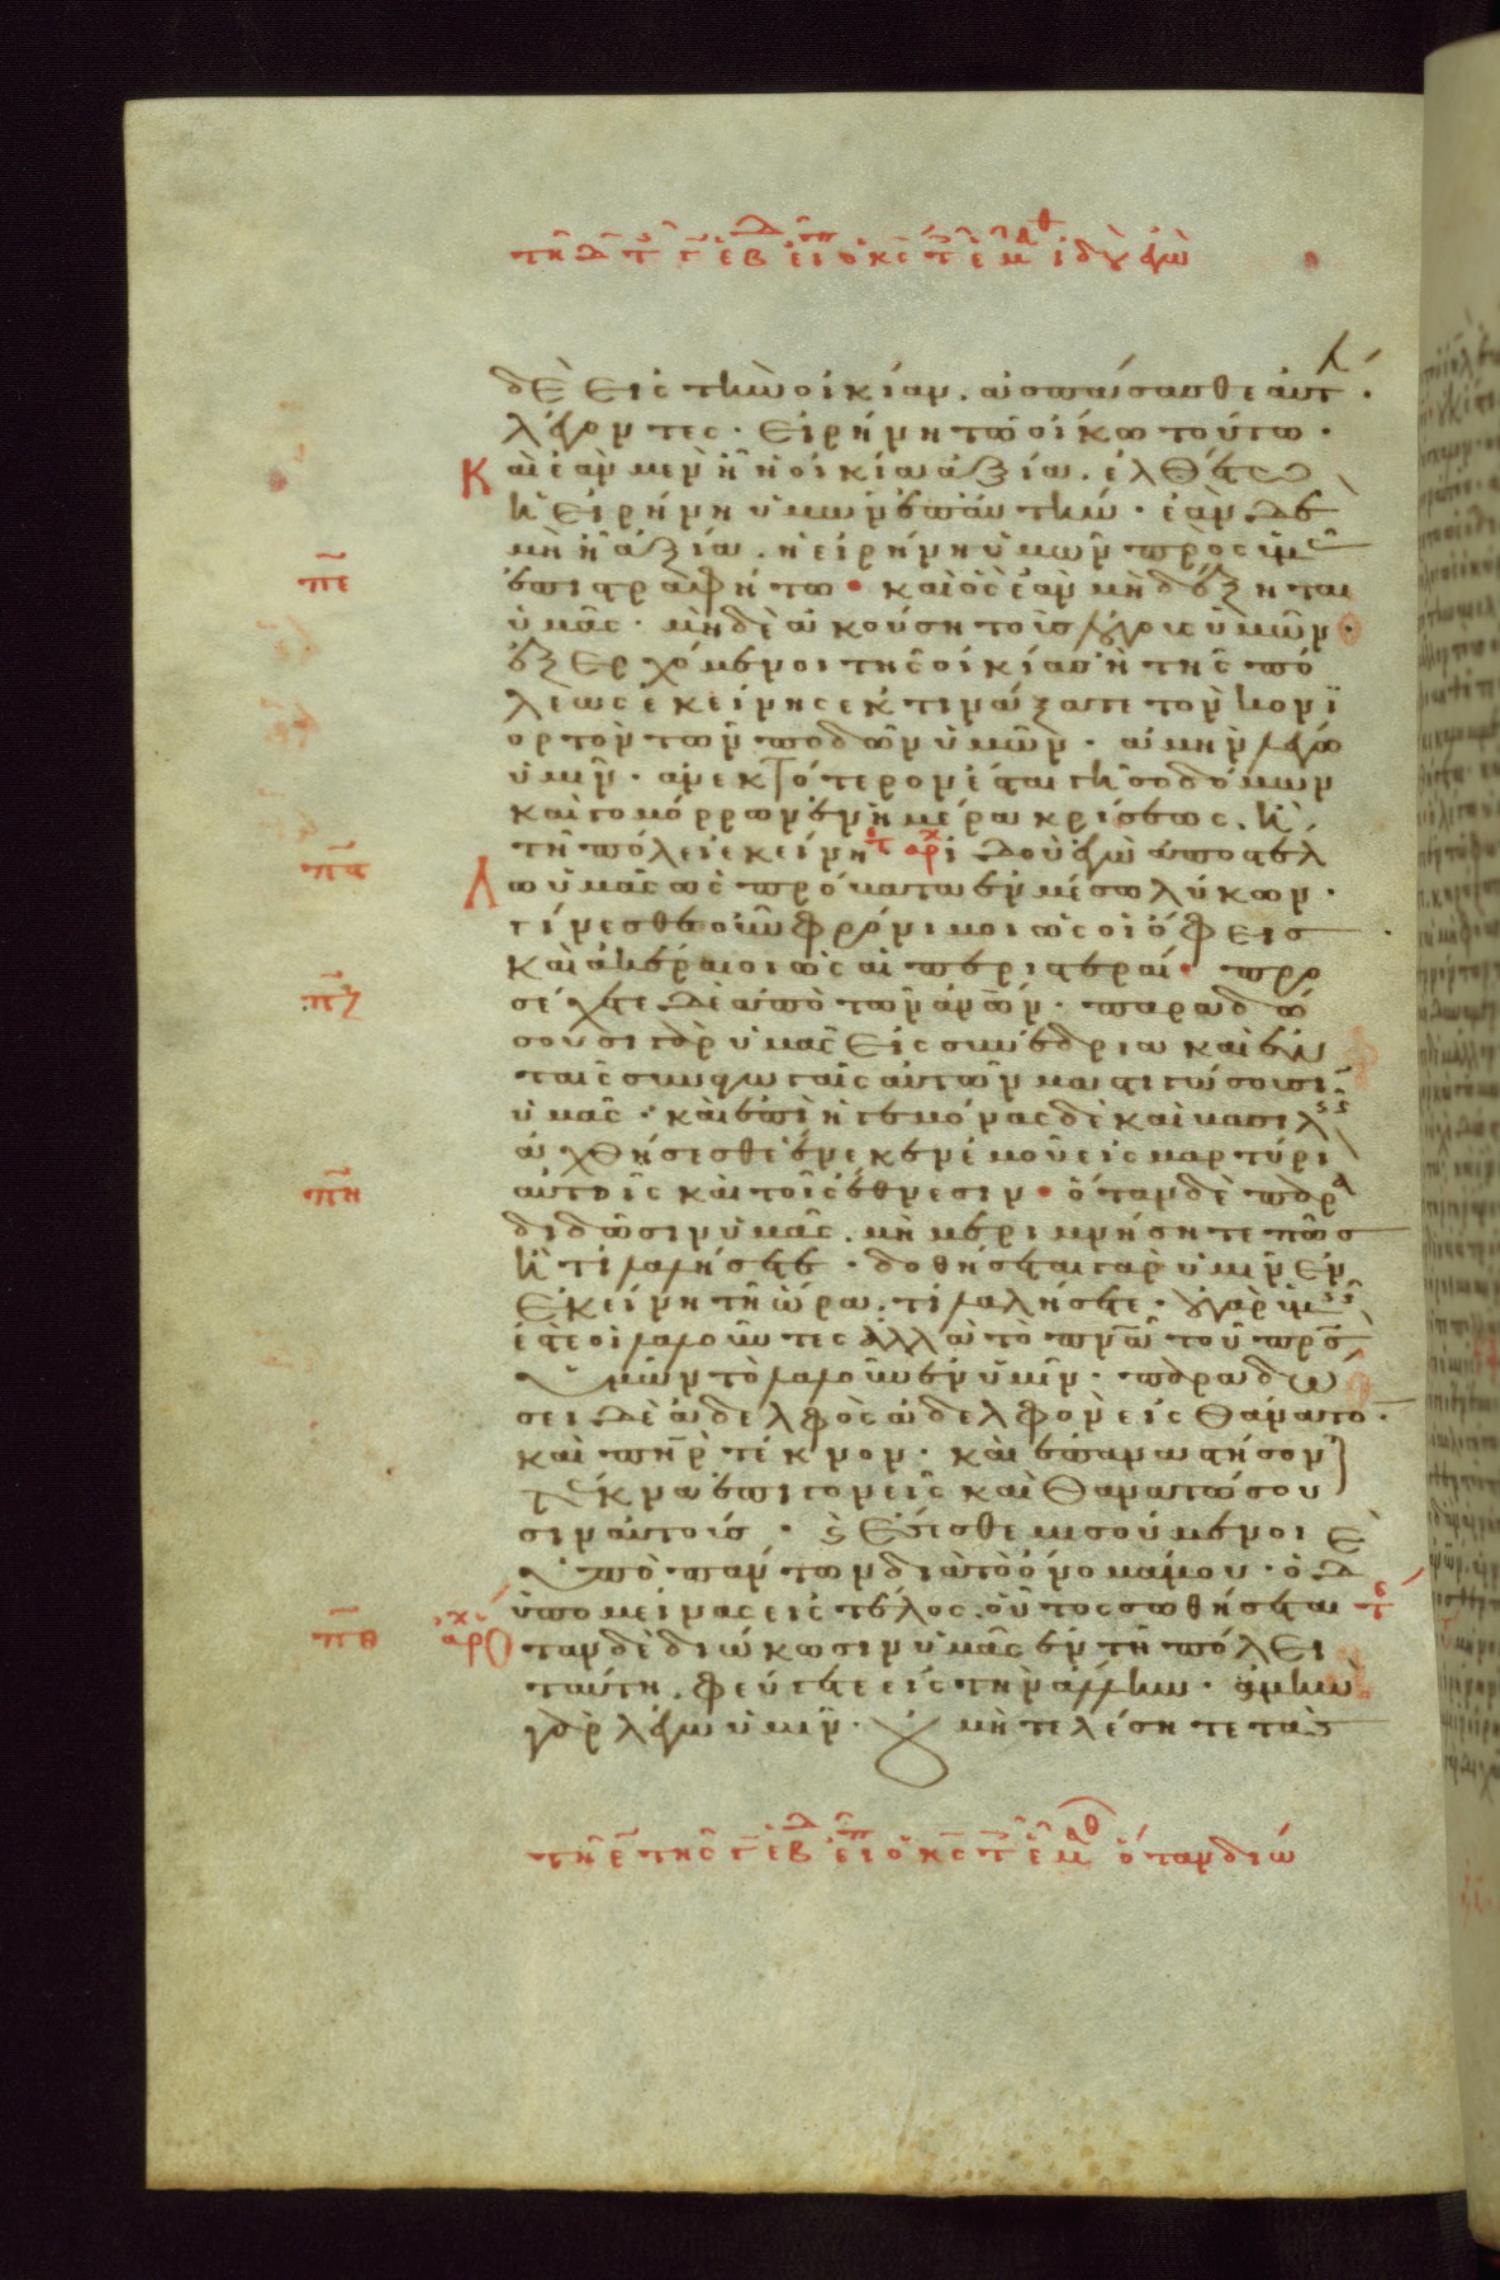 τῆ δ τ γ εβ ει ο κς τ ε μ ιδοὺ ἐγὼ
δὲ εἰς τὴν οἰκίαν. ἀσπάσασθε αὐτ
λέγοντες· εἰρήνη τῶ οἴκω τούτω·
Καὶ ἐὰν μὲν ἦ ἡ οἰκία ἀξία. ἐλθέτω
ἡ εἰρήνη ὑμῶν ἐπ' αὐτήν· ἐὰν δὲ
μὴ ἦ ἀξία. ἡ εἰρήνη ὑμῶν πρὸς ὑμᾶς
πε ἐπιστραφήτω· καὶ ὃς ἐὰν μὴ δέξηται
ὑμᾶς· μὴ δὲ ἀκούση τοὺς λόγους ὑμῶν·
ἐξερχόμενοι τῆς οἰκίας ἢ τῆς πό
λεως ἐκείνης ἐκτινάξατε τὸν κονι
ορτὸν τῶν ποδῶν ὑμῶν· ἀμὴν λέγω
ὑμῖν· ἀνεκτότερον ἔσται γῆ σοδόμων
καὶ γομόρρων ἐν ἡμέρα κρίσεως. ἢ
πς τῆ πόλει ἐκείνη τε αρχ ιδοὺ ἐγὼ ἀποστέλ
Λω ὑμᾶς ὡς πρόβατα ἐν μέσω λύκων·
γίνεσθε οὖν φρόνιμοι ὡς οἱ ὄφεις
καὶ ἀκέραιοι ὡς αἱ περιστεραί· προ
πζ σέχετε δὲ ἀπὸ τῶν ἀνων· παραδώ
σουσι γὰρ ὑμᾶς εἰς συνέδρια καὶ ἐν
ταῖς συναγωγαῖς αὐτῶν μαστιγώσουσιν
ὑμᾶς· καὶ ἐπὶ ἡγεμόνας δὲ καὶ βασιλεῖς
ἀχθήσεσθε ἕνεκεν ἐμοῦ εἰς μαρτύρι
πη αὐτοῖς καὶ τοῖς ἔθνεσιν· ὅταν δὲ παρα
διδῶσιν ὑμᾶς. μὴ μεριμνήσητε πῶς
ἢ τί λαλήσετε· δοθήσεται γὰρ ὑμῖν ἐν
ἐκείνη τῆ ὥρα. τί λαλήσετε· οὐ γὰρ ὑμεῖς
ἐστε οἱ λαλοῦντες ἀλλὰ τὸ πνα τοῦ πρς
ὑμῶν τὸ λαλοῦν ἐν ὑμῖν· παραδώ
σει δὲ ἀδελφὸς ἀδελφὸν εἰς θάνατο·
καὶ πηρ τέκνον· καὶ ἐπαναστήσον
τέκνα ἐπὶ γονεῖς καὶ θανατώσου
σιν αὐτούς· καὶ ἔσεσθε μισούμενοι
ὑπὸ πάντων διὰ τὸ ὄνομά μου· ὁ δὲ
ὑπομείνας εἰς τέλος. οὗτος σωθήσεται τε
πθ αρχ Ὅταν δὲ διώκωσιν ὑμᾶς ἐν τῆ πόλει
ταύτη. φεύγετε εἰς τὴν ἄλλην· ἀμὴν
γὰρ λέγω ὑμῖν· οὐ μὴ τελέσητε τὰς
τῆ ε τῆς γ εβ ει ο κς τ ε μ ὅταν διώ